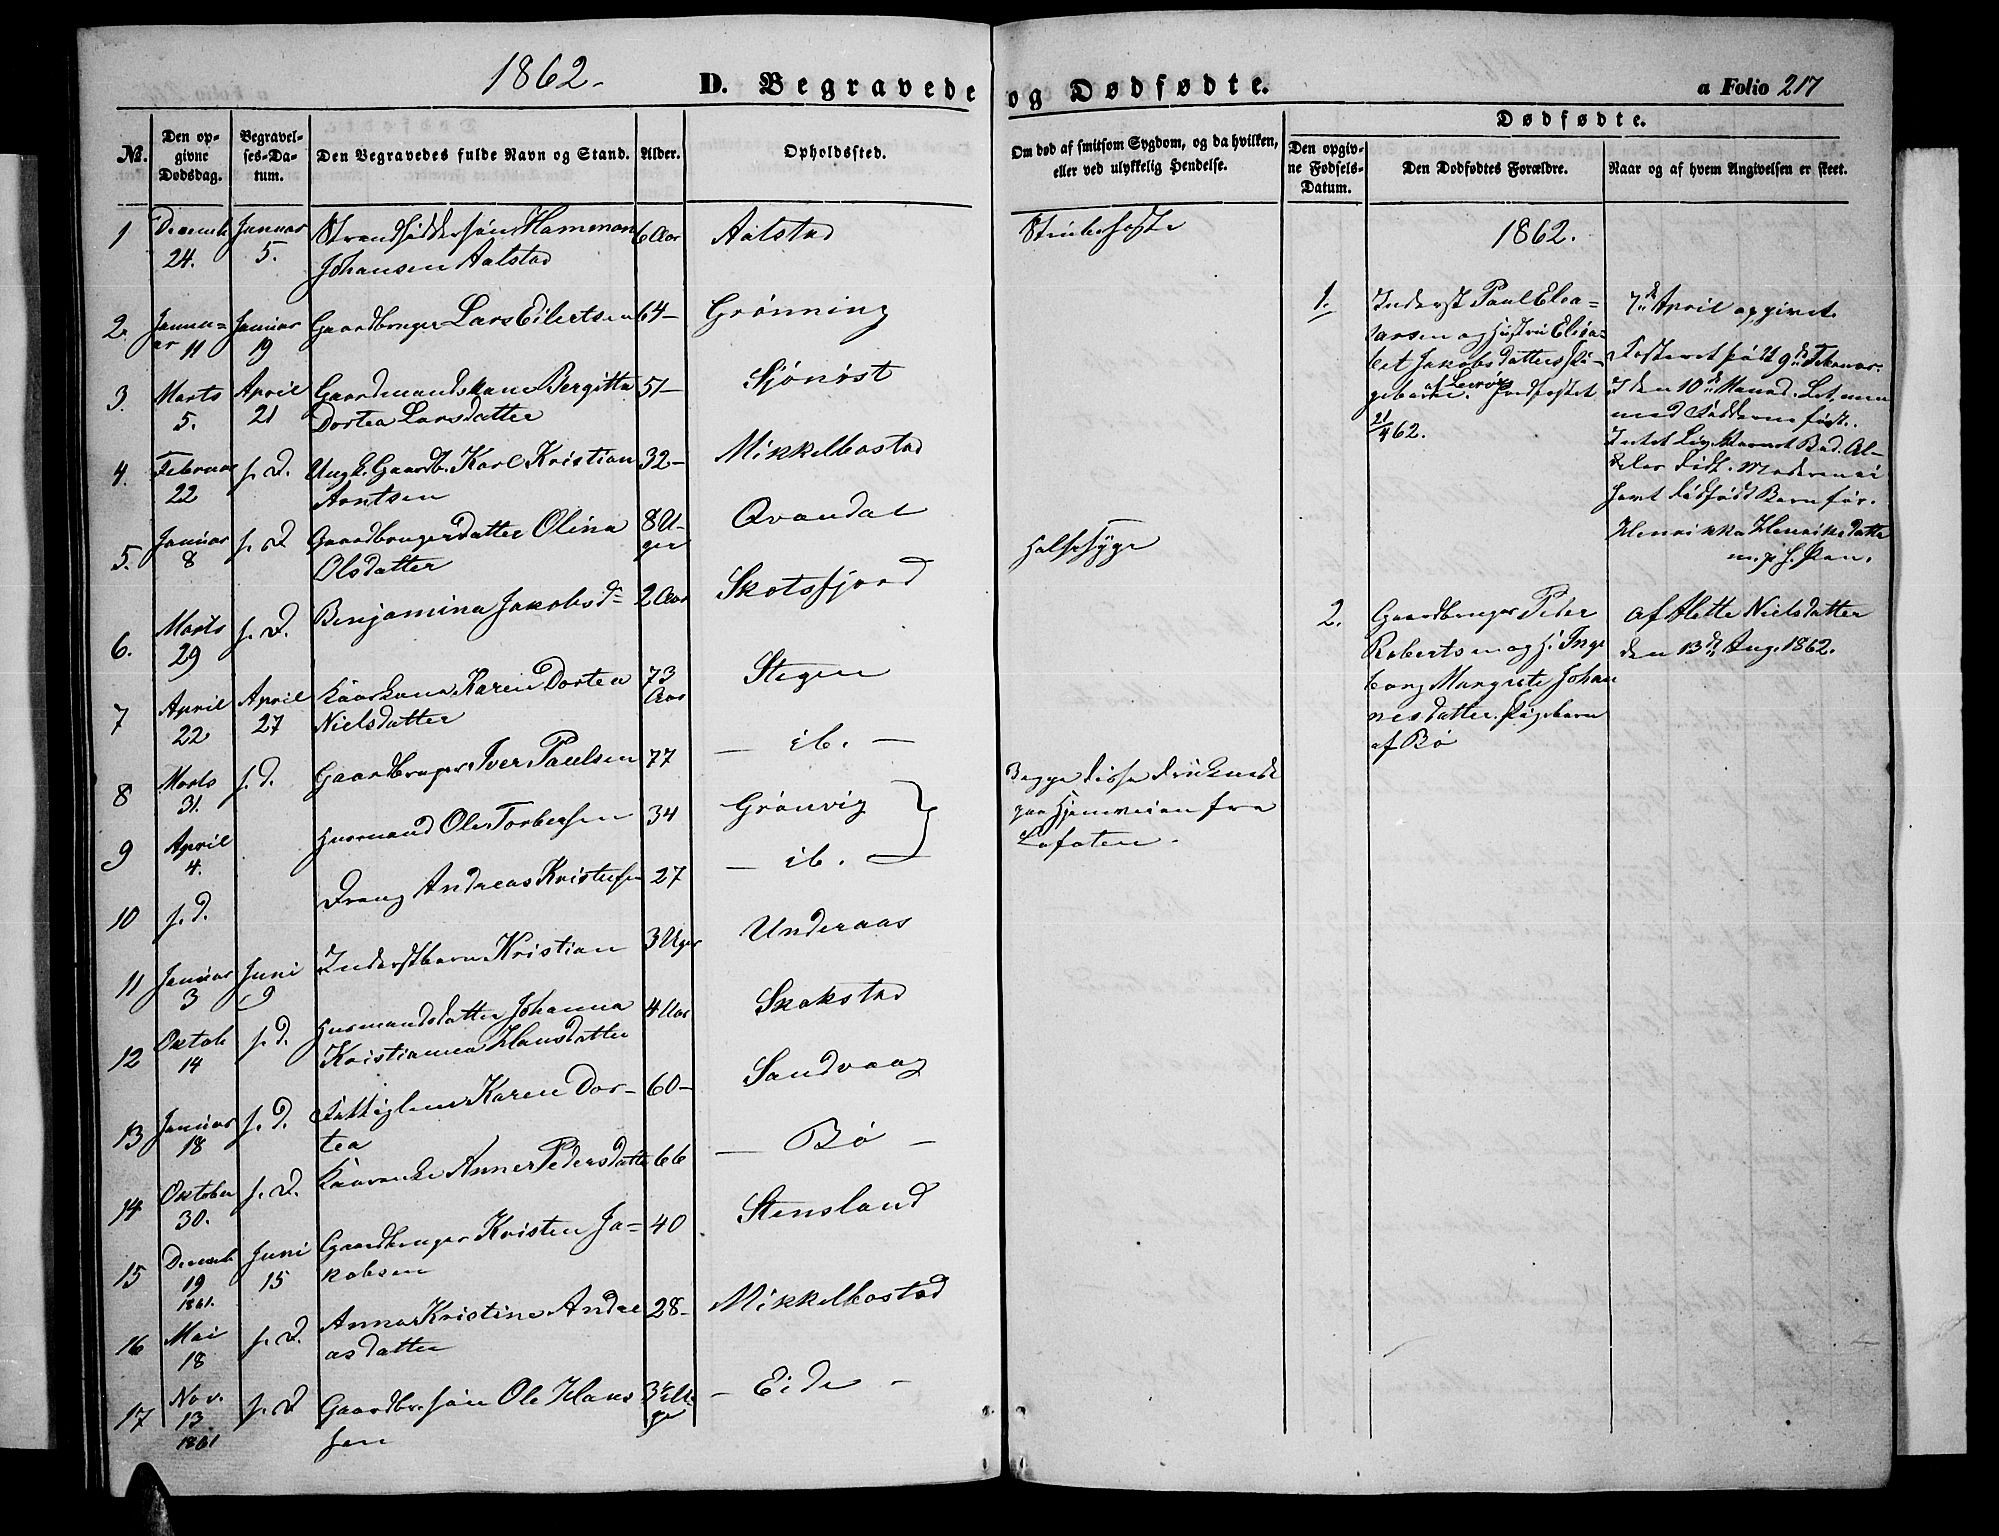 1862.
D. Begravede og Dødfødte.
a Folio 217
No.
Den opgivne Dødsdag.
Begravelses-Datum.
Den Begravedes fulde Navn og Stand.
Alder.
Opholdssted.
Om død af smitsom Sygdom, og da hvilken,
eller ved ulykkelig Hendelse.
Dødfødte.
Den opgivne Fødsels-Datum.
Den Dødfødtes Forældre.
Naar og af hvem Angivelsen er skeet.
1 Decemb 24. Januar 5. Strandsidders søn Hammon 6 Aar Aalstad Strubehoste
Johansen Aalstad
2. Januar 11 Januar 19 Gaardbruger Lars Eilertsen 64- Grønning
3. Marts 5. April 21 Gaardmandskone Bergitta 51- Sjønøst
Dortea Larsdatter
4. Februar 22 s. D. Ungk. Gaardb. Karl Kristian 32- Mikkelbostad
Arntsen
5. Januar 8 s. D Gaardbrugerdatter Olina 8 Uger Qvandal Halsesyge
Olsdatter
6. Marts 29 s. D. Benjamina Jakobsd= 2 Aar Skotsfjord
7 April 22 April 27 Kaarkone Karen Dortea 73 Aar Stegen
Nielsdatter
8 Marts 31. s. d. Gaardbruger Iver Paulsen 77 - ib. -
9 April 4. Husmand Ole Torbersen 34 Grønvig
10 s. d. Dreng Andreas Kristensen 27 - ib. -
Begge disse druknede
paa Hjemveien fra
Lofoten.
11 Januar 3 Juni 9 Inderstbarn Kristian 3 Uger Underaas
12 Oktob 14 s. d. Husmandsdatter Johanna 4 Aar Skokstad
Kristianna Hansdatter
13 Januar 18 s. d. Fattiglem Karen Dor- 60- Sandvaag
tea
14 Oktober 30. s. D. Kaarenke Anne Pedersdatter 66 - Bø -
15 Decemb 19 1861. Juni 15 Gaardbruger Kristen Ja= 40 Stensland
kobsen
16 Mai 18 s. D. Anna Kristine Andre 28- Mikkelbostad
asdatter
17 Nov. 13 1861 s. D Gaardbr. søn Ole Hans 3 Uger - Eide -
sen
1862.
1. Inderst Paul Elea=
sarsen og Hustru Elisa=
bet Jakobsdatters Pi=
gebarn. af Leirøg
21/4 62.
7de April opgivet
Fosteret født 9de Februar
I den 10de Maaned. Let, men
med Fødderne først.
Henrikka Henriksdatter
m. p. f. Pen.
2. Gaardbruger Peder
Robertsen og H. Inge
borg Margrete Johan
nesdatter. Pigebarn
af Bø
af Mette Nielsdatter
den 13de Aug. 1862.